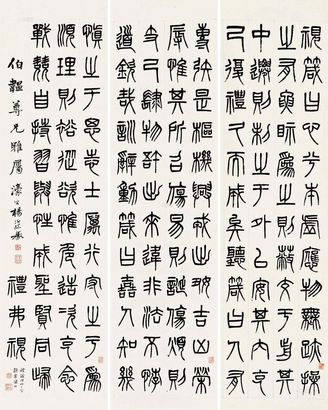 視箴曰心兮本虛應物無迹操
之有要視爲之則蔽交于前其
中則遷制之于外以安其內克
己復禮久而誠矣聽箴曰人有
專矧是樞機興戎出好吉凶榮
辱惟其所召傷易則誕傷煩則
支己肆物忤出悖來違非法不
道欽哉訓辭動箴曰哲人知幾
慎之于思志士厲行守之于爲
順理則裕從欲惟危造次克念
戰兢自持習與性成聖賢同歸
伯韞尊兄雅屬 濠叟楊沂孫
禮弗視